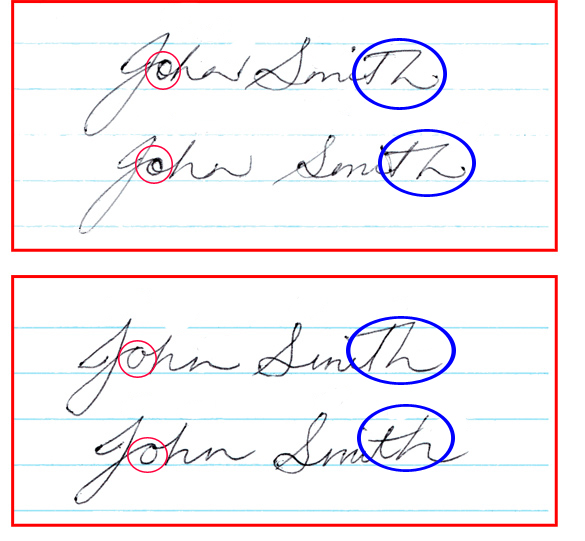 John Smith
John Smith
John Smith
John Smith